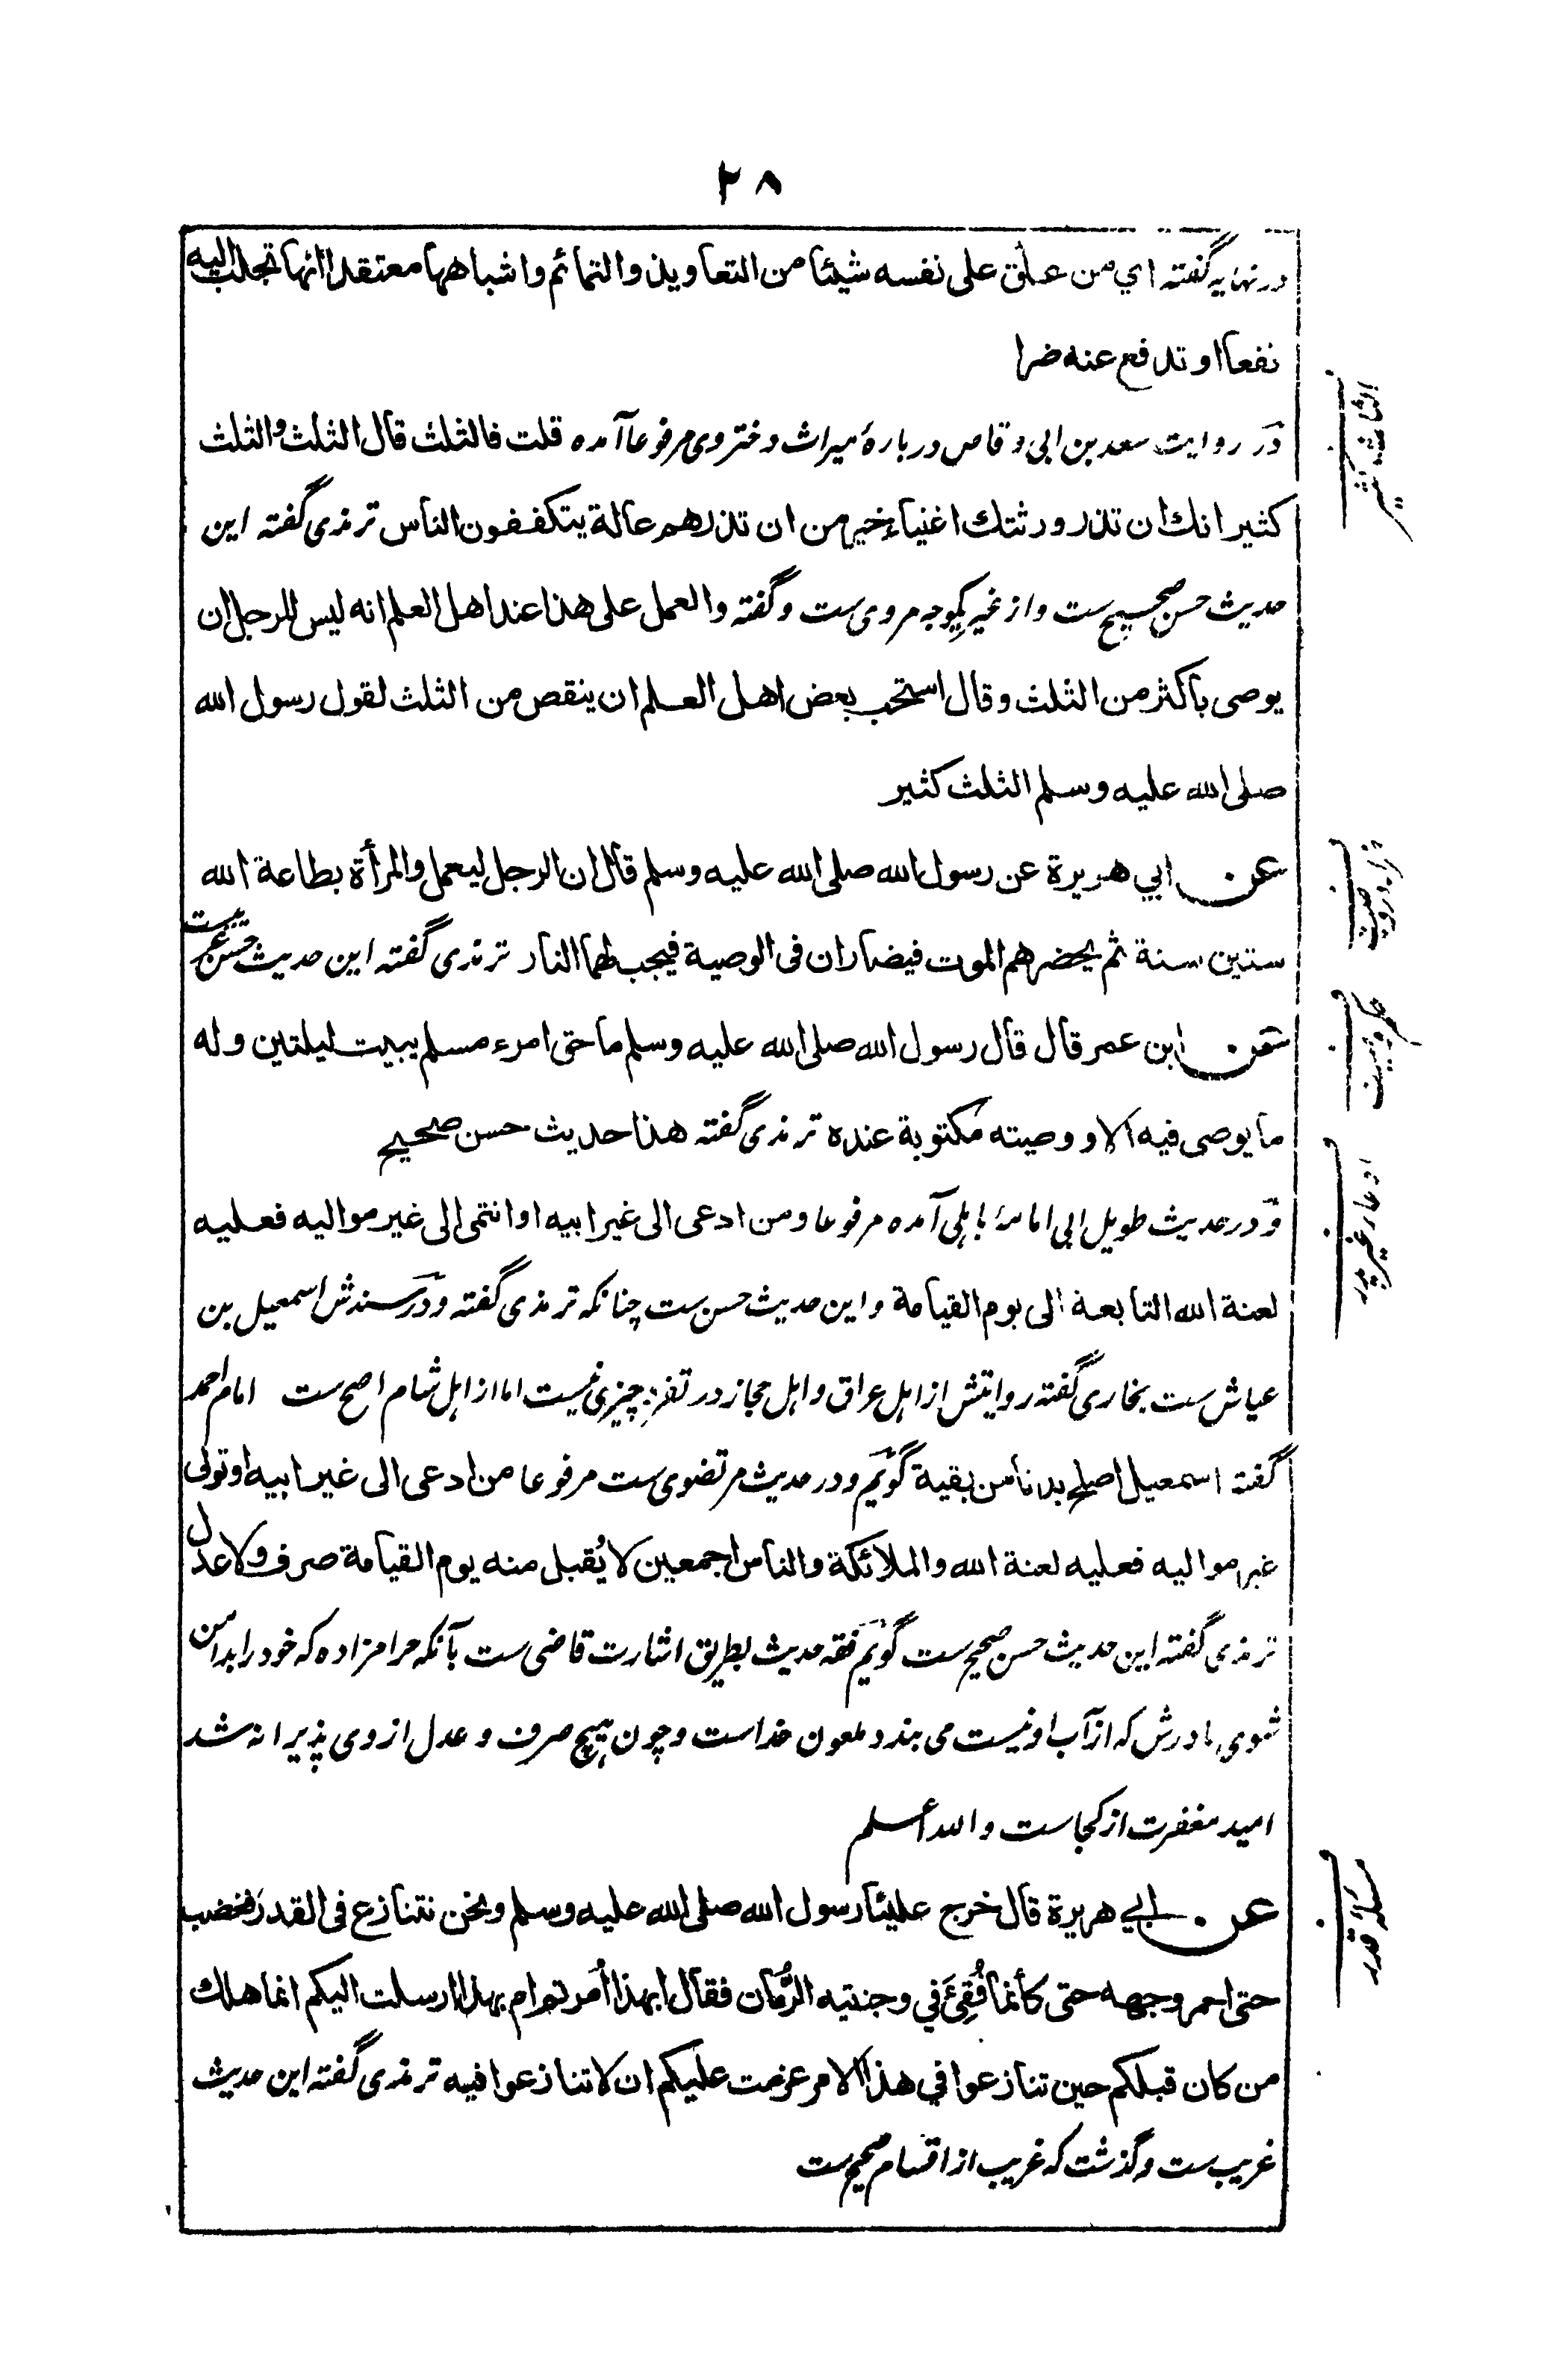 ۲۸
در نهایه گفته اي من علق على نفسه شيئا من التعاويذ والتمائم واشباهها معتقدا انها تجلب اليه
نفعا او تدفع عنه ضرا
در روایت سعد بن ابی وقاص دربارهٔ میراث دختر وی مرفوعا آمده قلت فالثلث قال الثلث والثلث
كثير انك ان تذر ورثتك اغنياء خير من ان تذرهم عالة يتكففون الناس ترمذی گفته این
حدیث حسن صحیح ست و از غیر یکوجه مروی ست و گفته والعمل على هذا عند اهل العلم انه ليس للرجل ان
يوصى باكثر من الثلث وقال استحب بعض اهل العلم ان ينقص من الثلث لقول رسول الله
صلى الله عليه وسلم الثلث كثير
عن ابي هريرة عن رسول الله صلى الله عليه وسلم قال ان الرجل ليعمل والمرأة بطاعة الله
ستين سنة ثم يحضرهم الموت فيضاران فى الوصية فيجب لهما النار ترمذی گفته این حدیث حسن غریب ست
عن ابن عمر قال قال رسول الله صلى الله عليه وسلم ما حق امرء مسلم يبيت ليلتين وله
ما يوصى فيه الا ووصيته مكتوبة عنده ترمذی گفته هذا حديث حسن صحيح
و در حدیث طویل ابی امامهٔ باہلی آمده مرفوعا ومن ادعى الى غير ابيه او انتمى الى غير مواليه فعليه
لعنة الله التابعة الى يوم القيامة و این حدیث حسن ست چنانکه ترمذی گفته و در سندش اسمعیل بن
عیاش ست بخاری گفته روایتش از اہل عراق و اہل حجاز در تفرد چیزی نیست اما از اہل شام اصح ست امام احمد
گفته اسمعيل اصلح بدنا من بقية گویم و در حدیث مرتضوی ست مرفوعا من ادعى الى غير ابيه او تولى
غير مواليه فعليه لعنة الله والملائكة والناس اجمعين لا يُقبل منه يوم القيامة صرف ولا عدل
ترمذی گفته این حدیث حسن صحیح ست گویم فقه حدیث بطریق اشارت قاضی ست بآنکه حرامزاده که خود را بدامن
شوی مادرش که از آب او نیست می بندد ملعون خداست و چون ہیچ صرف و عدل از وی پذیرا نه شد
امید مغفرت از کجاست والله اعلم
عن ابي هريرة قال خرج علينا رسول الله صلى الله عليه وسلم ونحن نتنازع فى القدر فغضب
حتى احمر وجهه حتى كأنما فُقِئَ في وجنتيه الرُّمان فقال ابهذا أُمرتم ام بهذا ارسلت اليكم انما هلك
من كان قبلكم حين تنازعوا في هذا الامر عزمت عليكم ان لا تنازعوا فيه ترمذی گفته این حدیث
غریب ست و گذشت که غریب از اقسام صحیح ست
الثلث کثیر
ادعاء غیر پدر
مسئله قدر